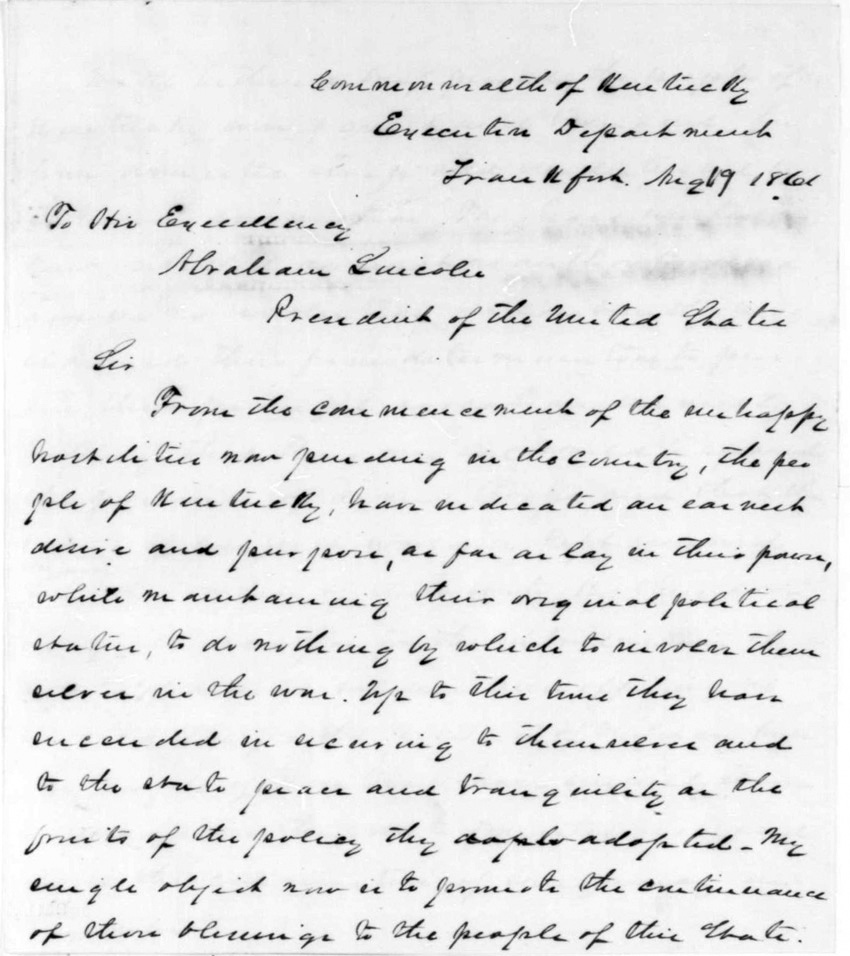 Commonwealth of Kentucky
Executive Department
Frankfort. Aug 19 1861
To His Excellency
Abraham Lincoln
President of the United States
Sir
From the commencement of the unhappy
hostilities now pending in the country, the peo
ple of Kentucky, have indicated an earnest
desire and purpose, as far as lay in their power,
while maintaining their original political
status, to do nothing by which to involve them
selves in the war. Up to this time they have
succeeded in securing to themselves and
to the state peace and tranquility as the
fruits of the policy they adopted - My
single object now is to promote the continuance
of those blessings to the people of this State.